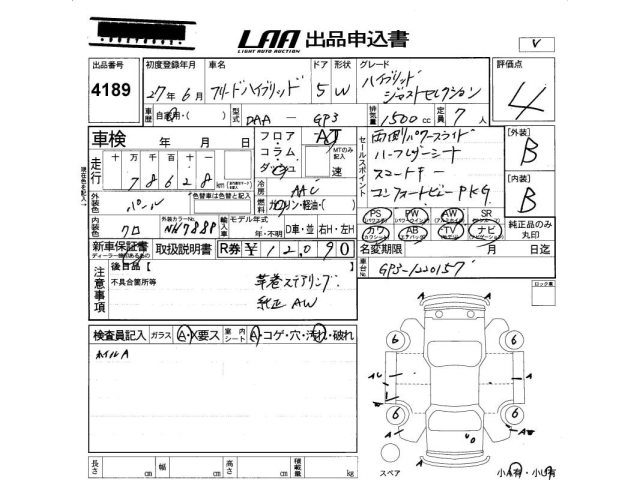 LAA 出品申込書
LIGHT AUTO AUCTION
V
出品番号 4189
初度登録年月 27年6月
車名 フリードハイブリッド
ドア 5
形状 W
グレード ハイブリッド
ジャストセレクション
評価点 4
車歴 自家用・( )
型式 DAA — GP3
排気量 1500 cc
定員 7人
車検 年 月 日
フロア AT
コラム
ダッシュ
MTのみ記入
速
走行 十 万 千 百 十 一 km
7 8 6 2 8 km
色替車は色替と記入
外装色 パール
冷房 AAC
燃料 ガソリン・軽油・( )
セールスポイント
両側パワースライド
ハーフレザーシート
スマートキー
コンフォートビューPKG
[外装] B
[内装] B
内装色 クロ
外装カラーNo. NH788P
輸入車 モデル年式
年・不明 D車・並 右H・左H
PS PW AW SR
カワ AB TV ナビ
純正品のみ丸印
新車保証書
取扱説明書
R券 ¥ 12090
名変期限 月 日迄
車台No. GP3-1220157
注意事項
後日品【 】
不具合箇所等
革巻ステアリング
純正AW
ロック車
検査員記入 ガラス A・X要ス 室内シート A・コゲ・穴・汚れ・破れ
ホイルA
6 6
6 6
A
A
スペア
小A有・小U有
長さ cm 幅 cm 高さ cm 積載量 kg